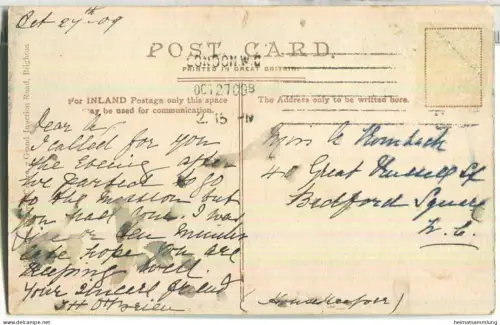 Oct 27th 09
POST CARD.
PRINTED IN GREAT BRITAIN
LONDON. W.C
OCT 27 09
2. 15 PM
For INLAND Postage only this space
may be used for communication.
The Address only to be written here.
Grand Junction Road, Brighton
Dear
I called for you
the Evening after
we parted to go
to the mission but
you had gone. I was
five or ten minutes
late hope you are
keeping well.
Your Sincere friend
J H O'Brien
Miss A
40 Great Russell St
Bedford Square
W. C.
(Housekeeper)
heimatsammlung.de